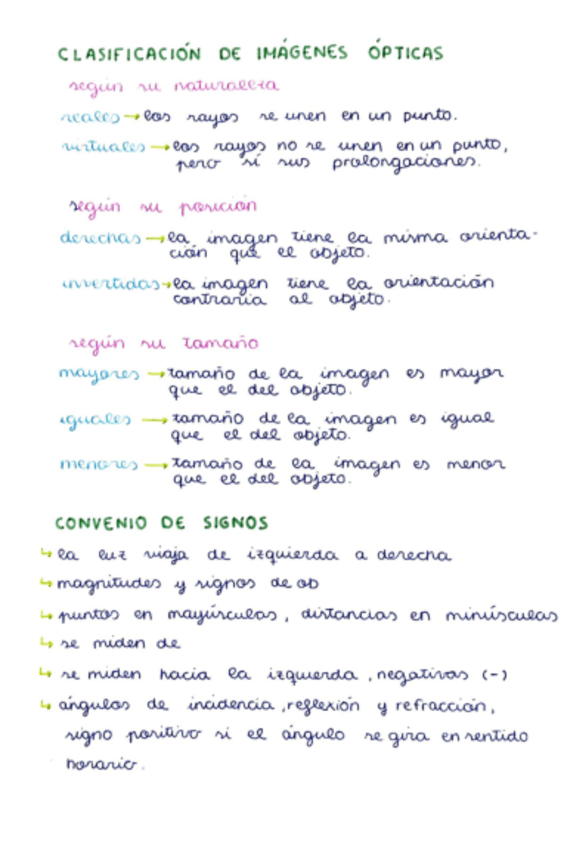 CLASIFICACIÓN DE IMÁGENES ÓPTICAS
según su naturaleza
reales → los rayos se unen en un punto.
virtuales → los rayos no se unen en un punto,
pero sí sus prolongaciones.
según su posición
derechas → la imagen tiene la misma orienta-
ción que el objeto.
invertidas → la imagen tiene la orientación
contraria al objeto.
según su tamaño
mayores → tamaño de la imagen es mayor
que el del objeto.
iguales → tamaño de la imagen es igual
que el del objeto.
menores → tamaño de la imagen es menor
que el del objeto.
CONVENIO DE SIGNOS
↳ la luz viaja de izquierda a derecha
↳ magnitudes y signos de ob
↳ puntos en mayúsculas, distancias en minúsculas
↳ se miden de
↳ se miden hacia la izquierda, negativas (-)
↳ ángulos de incidencia, reflexión y refracción,
signo positivo si el ángulo se gira en sentido
horario.